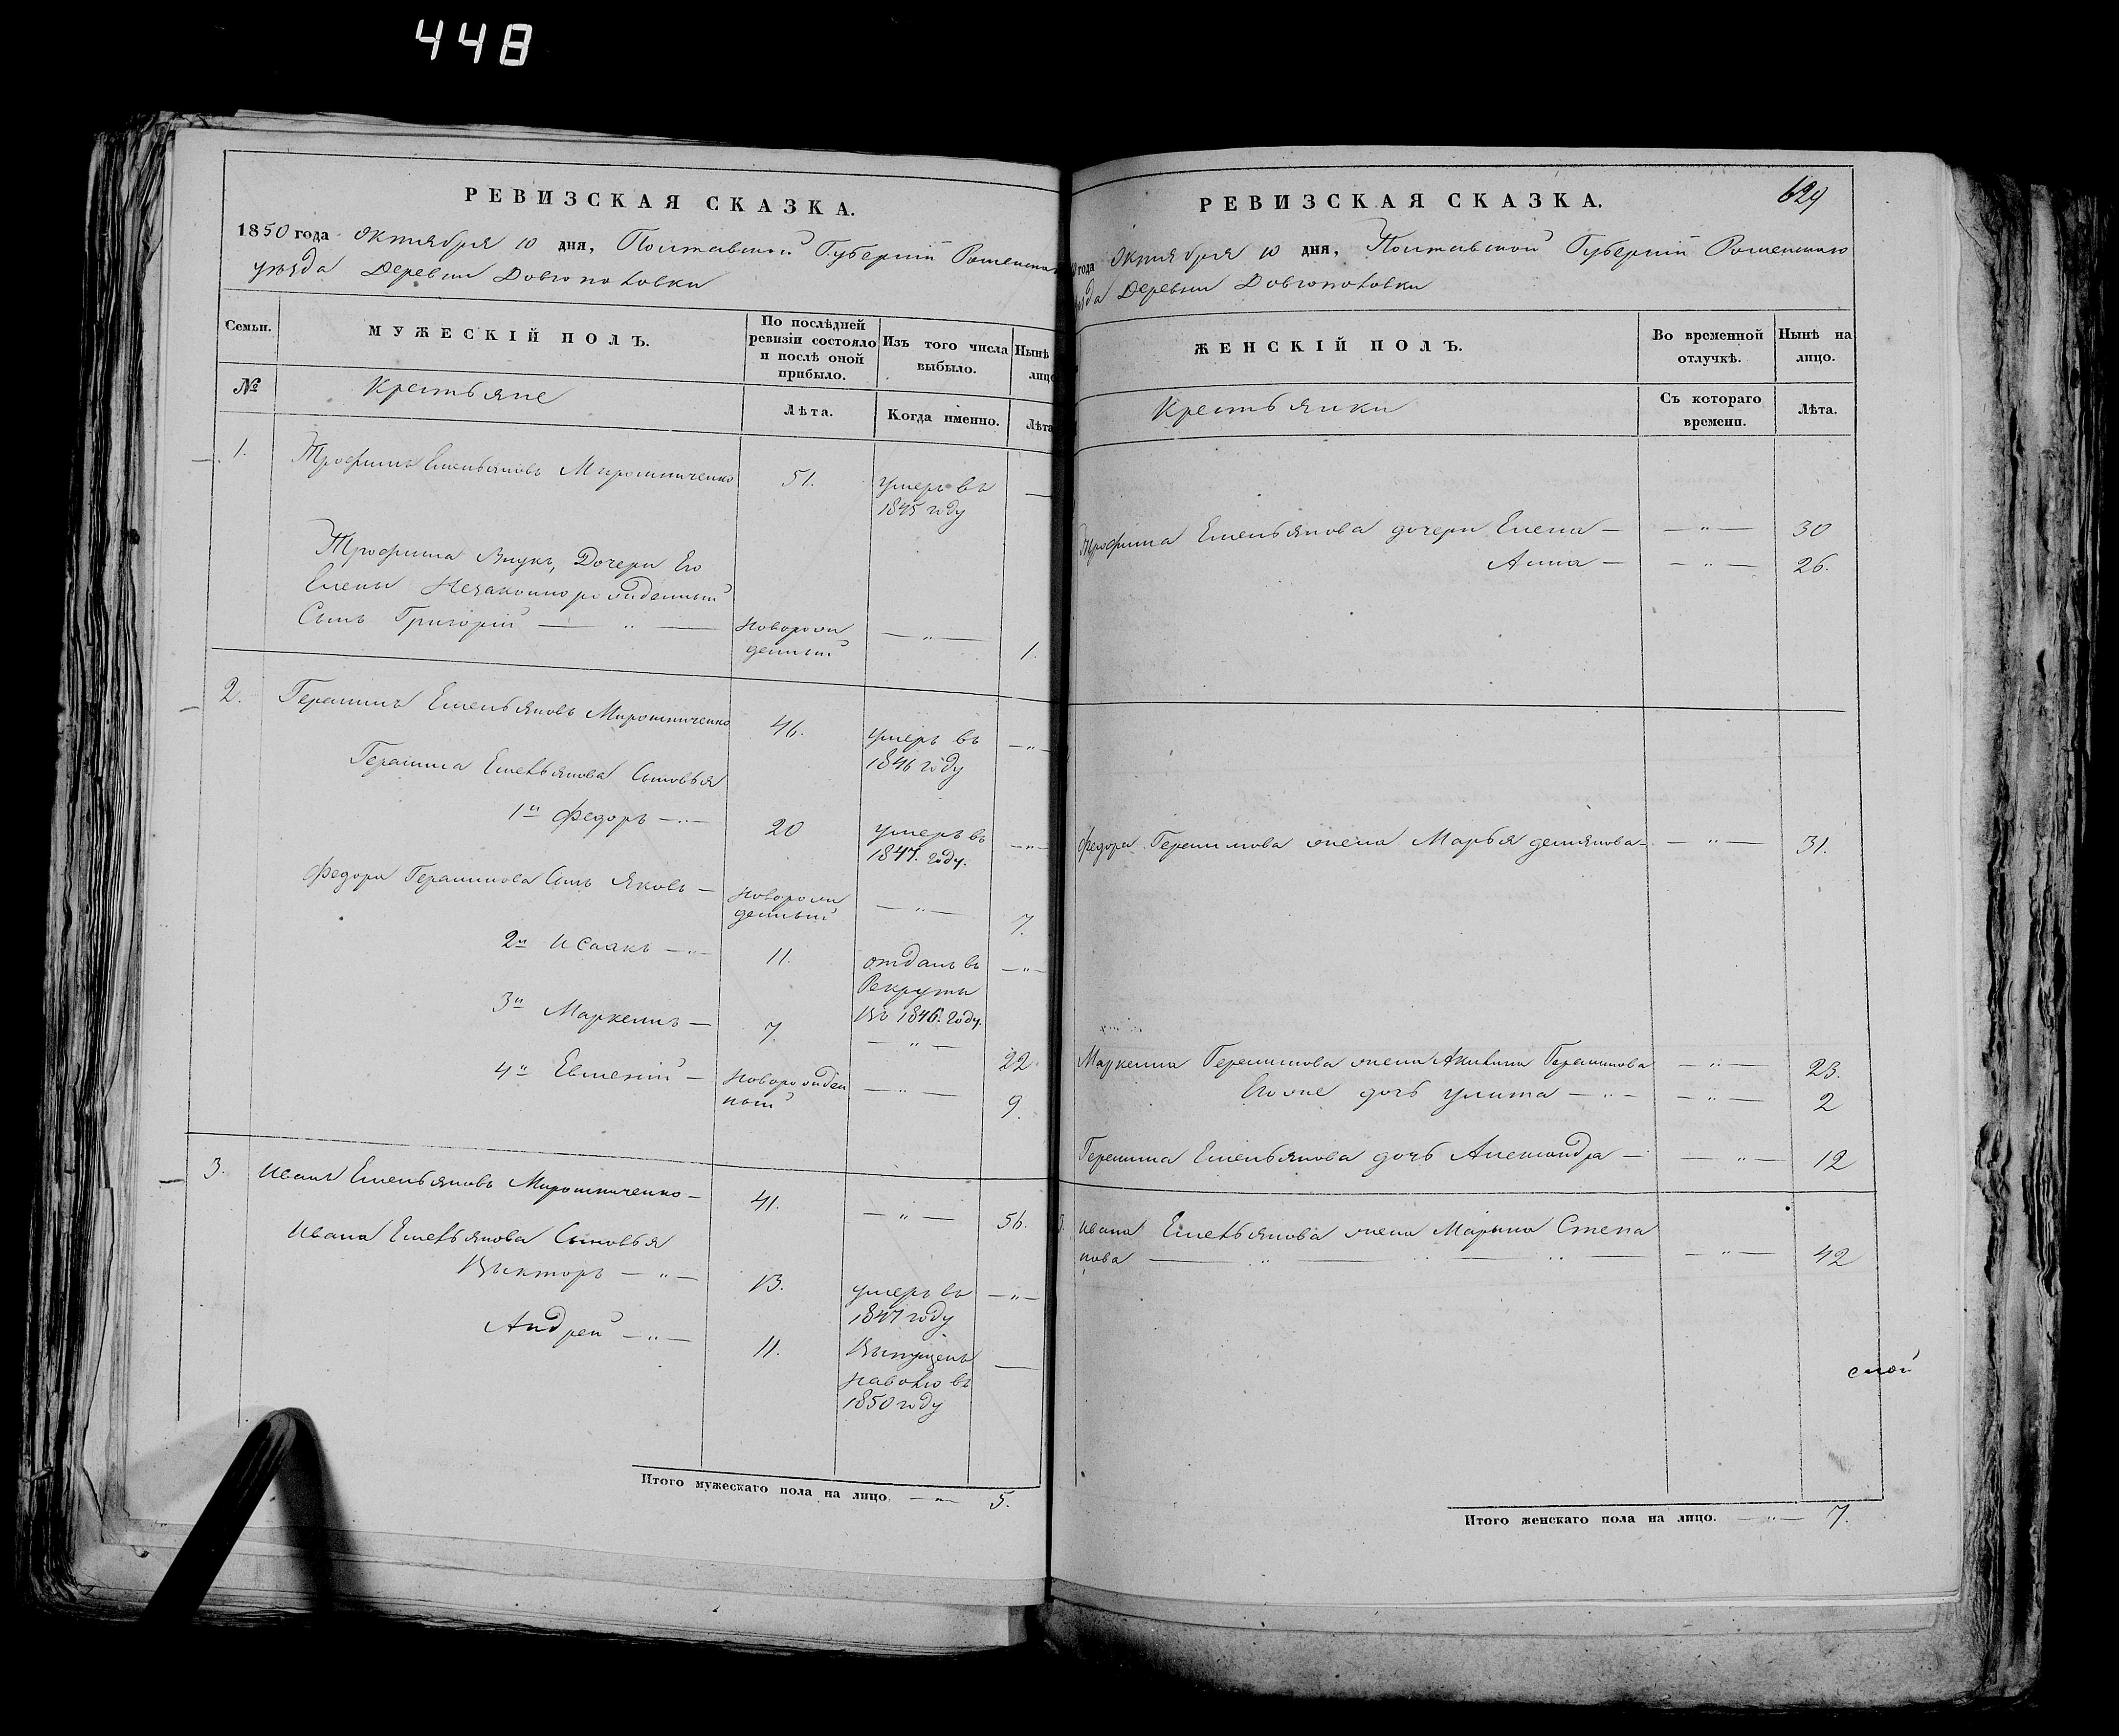 448
РЕВИЗСКАЯ СКАЗКА.
1850 года Октября 10 дня, Полтавской Губерніи Роменскаго
уезда Деревни Довгополовки
Семьи. МУЖЕСКІЙ ПОЛЪ. По послѣдней ревизіи состояло и послѣ оной прибыло. Изъ того числа выбыло. Нынѣ лицо
№ Крестьяне Лѣта. Когда именно. Лѣта
1. Трофимъ Емельяновъ Мирошниченко 51. умеръ въ
1845 году
Трофима Внукъ, Дочери Его
Елены Незаконнорожденный
Сынъ Григорій новорож
денный 1.
2. Герасимъ Емельяновъ Мирошниченко 46. умеръ въ
1846 году
Герасима Емельянова Сыновья
1й Федоръ 20 умеръ въ
1847. году.
Федора Герасимова Сынъ Яковъ новорож
денный 7.
2й Исаакъ 11. отданъ въ
Рекруты
въ 1846. году.
3й Маркелъ 7. 22
4й Евгеній новорожден
ный 9.
3. Иванъ Емельяновъ Мирошниченко 41. 51.
Ивана Емельянова Сыновья
Викторъ 13. умеръ въ
1847 году
Андрей 11. Выпущенъ
наволю въ
1850 году
Итого мужескаго пола на лицо 5.
629
РЕВИЗСКАЯ СКАЗКА.
года Октября 10 дня, Полтавской Губерніи Роменскаго
Деревни Довгополовки
ЖЕНСКІЙ ПОЛЪ. Во временной отлучкѣ. Нынѣ на лицо.
Крестьянки Съ котораго времени. Лѣта.
Трофима Емельянова дочери Елена 30
Анна 26.
Федора Герасимова жена Марья демянова 31.
Маркела Герасимова жена Акилина Герасимова 23.
Егоже дочь улита 2
Герасима Емельянова дочь Александра 12
Ивана Емельянова жена Марина Степа
нова 42
Итого женскаго пола на лицо. 7.